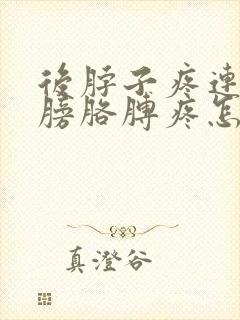 後脖子疼連
膀胳膊疼怎
真澄谷